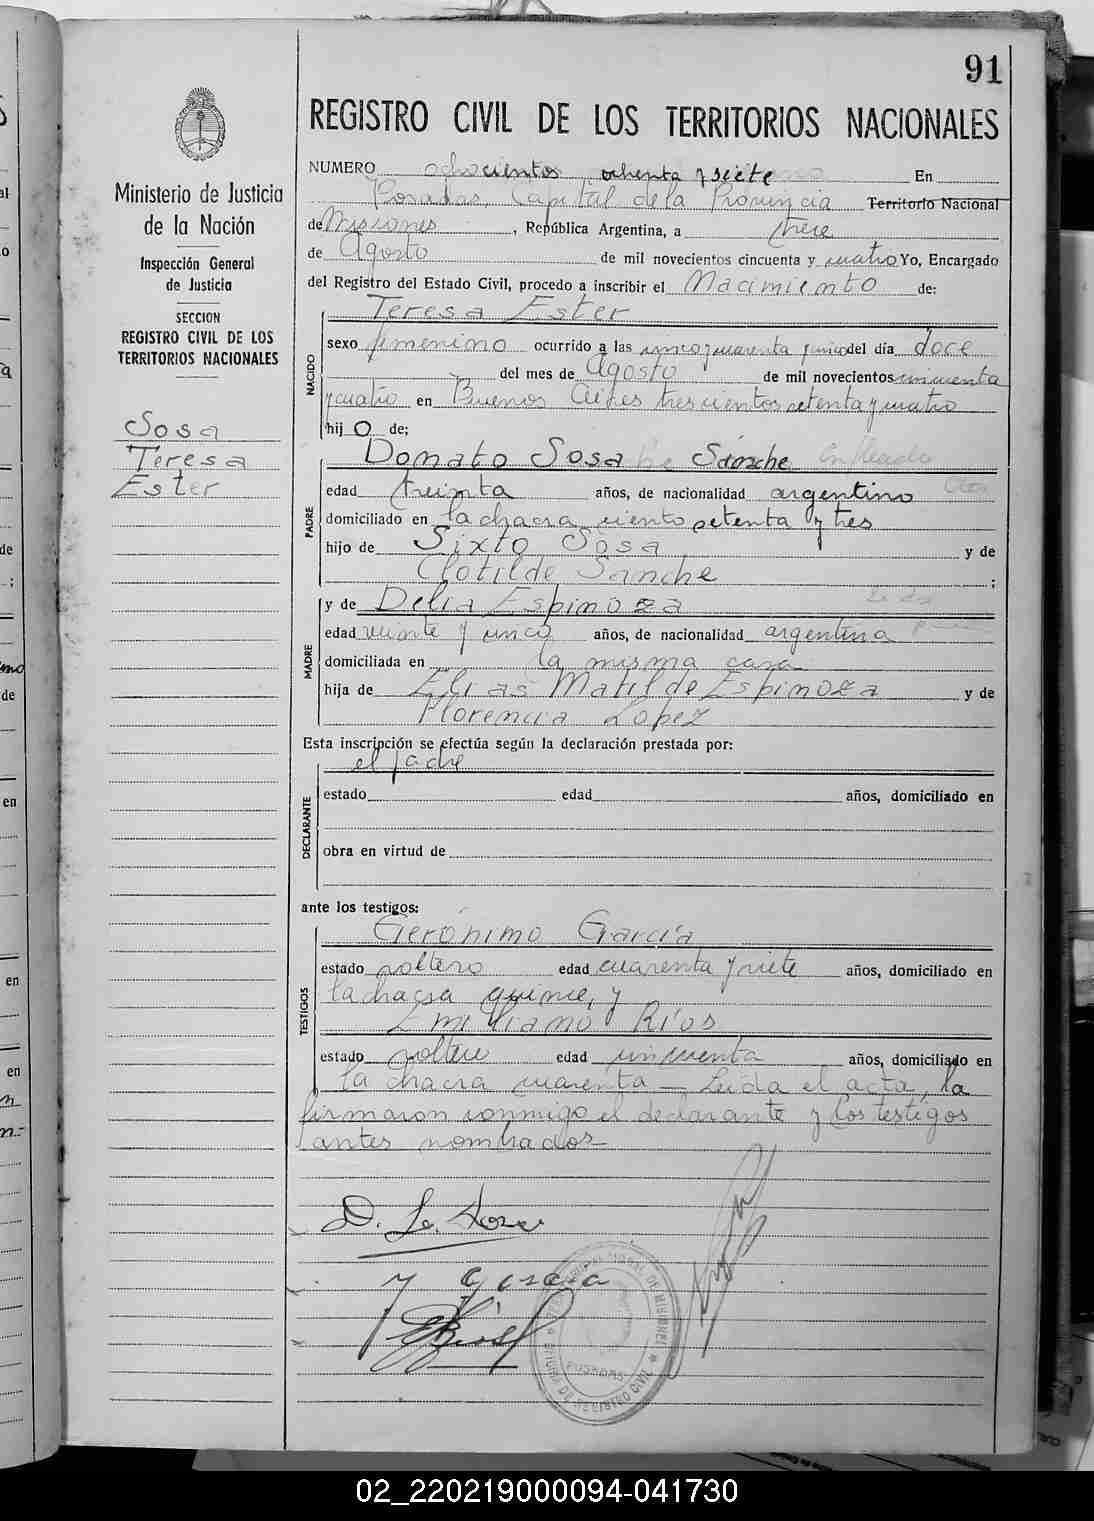 91
REGISTRO CIVIL DE LOS TERRITORIOS NACIONALES
Ministerio de Justicia
de la Nación
Inspección General
de Justicia
SECCION
REGISTRO CIVIL DE LOS
TERRITORIOS NACIONALES
Sosa
Teresa
Ester
NUMERO ochocientos ochenta y siete En
Posadas, Capital de la Provincia Territorio Nacional
de Misiones, República Argentina, a trece
de Agosto de mil novecientos cincuenta y cuatro Yo, Encargado
del Registro del Estado Civil, procedo a inscribir el Nacimiento de:
Teresa Ester
NACIDO
sexo femenino ocurrido a las cinco y cuarenta y cinco del día doce
del mes de Agosto de mil novecientos cincuenta
y cuatro en Buenos Aires trescientos setenta y cuatro
hij o de;
PADRE
Donato Sosa Sanche Empleado
edad treinta años, de nacionalidad argentino
domiciliado en la chacra ciento setenta y tres
hijo de Sixto Sosa y de
Clotilde Sanche ;
MADRE
y de Delia Espinoza
edad veinte y cinco años, de nacionalidad argentina
domiciliada en la misma casa
hija de Elias Matilde Espinoza y de
Florencia Lopez
Esta inscripción se efectúa según la declaración prestada por:
el padre
DECLARANTE
estado edad años, domiciliado en
obra en virtud de
ante los testigos:
TESTIGOS
Gerónimo García
estado soltero edad cuarenta y siete años, domiciliado en
la chacra quince, y
Emiliano Ríos
estado soltero edad cincuenta años, domiciliado en
la chacra cuarenta — Leida el acta, la
firmaron conmigo el declarante y los testigos
antes nombrados—
D. S. Sosa
y Garcia
E Rios
OFICINA DE REGISTRO CIVIL
POSADAS
02_220219000094-041730